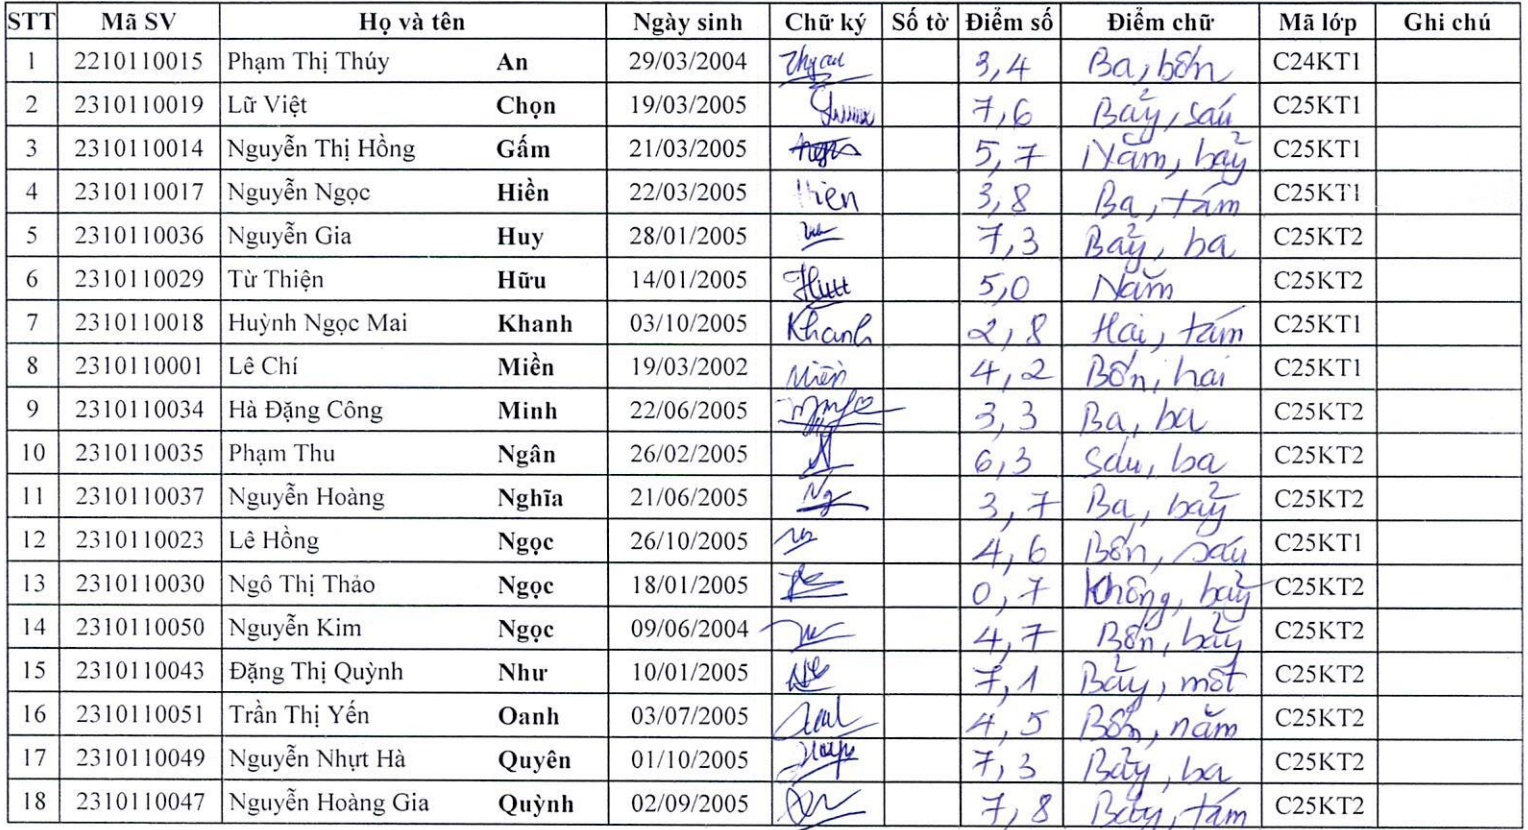 STT Mã SV Họ và tên Ngày sinh Chữ ký Số tờ Điểm số Điểm chữ Mã lớp Ghi chú
1 2210110015 Phạm Thị Thúy An 29/03/2004 3,4 Ba, bốn C24KT1
2 2310110019 Lữ Việt Chọn 19/03/2005 7,6 Bảy, sáu C25KT1
3 2310110014 Nguyễn Thị Hồng Gấm 21/03/2005 5,7 Năm, bảy C25KT1
4 2310110017 Nguyễn Ngọc Hiền 22/03/2005 Hien 3,8 Ba, tám C25KT1
5 2310110036 Nguyễn Gia Huy 28/01/2005 7,3 Bảy, ba C25KT2
6 2310110029 Từ Thiện Hữu 14/01/2005 5,0 Năm C25KT2
7 2310110018 Huỳnh Ngọc Mai Khanh 03/10/2005 Khanh 2,8 Hai, tám C25KT1
8 2310110001 Lê Chí Miền 19/03/2002 Miền 4,2 Bốn, hai C25KT1
9 2310110034 Hà Đặng Công Minh 22/06/2005 3,3 Ba, ba C25KT2
10 2310110035 Phạm Thu Ngân 26/02/2005 6,3 Sáu, ba C25KT2
11 2310110037 Nguyễn Hoàng Nghĩa 21/06/2005 3,7 Ba, bảy C25KT2
12 2310110023 Lê Hồng Ngọc 26/10/2005 4,6 Bốn, sáu C25KT1
13 2310110030 Ngô Thị Thảo Ngọc 18/01/2005 0,7 Không, bảy C25KT2
14 2310110050 Nguyễn Kim Ngọc 09/06/2004 4,7 Bốn, bảy C25KT2
15 2310110043 Đặng Thị Quỳnh Như 10/01/2005 7,1 Bảy, một C25KT2
16 2310110051 Trần Thị Yến Oanh 03/07/2005 4,5 Bốn, năm C25KT2
17 2310110049 Nguyễn Nhựt Hà Quyên 01/10/2005 7,3 Bảy, ba C25KT2
18 2310110047 Nguyễn Hoàng Gia Quỳnh 02/09/2005 7,8 Bảy, tám C25KT2